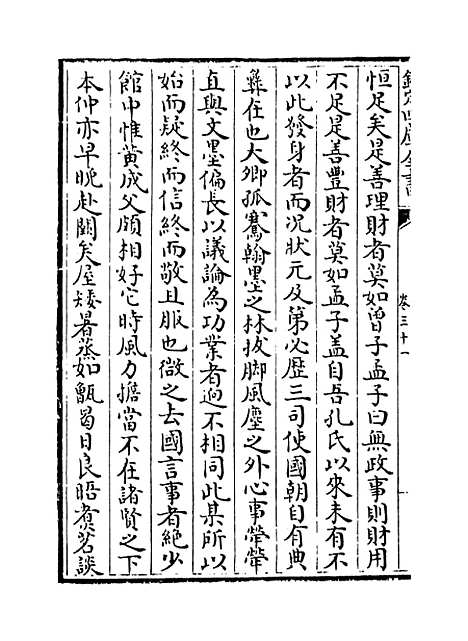 欽定四庫全書
卷三十一
恒足矣是善理財者莫如曾子孟子曰無政事則財用
不足是善豐財者莫如孟子盖自吾孔氏以來未有不
以此發身者而况狀元及第必歷三司使國朝自有典
彛在也大卿孤騫翰墨之林拔脚風塵之外心事犖犖
直與文墨偏長以議論為功業者逈不相同此某所以
始而疑終而信終而敬且服也微之去國言事者絶少
館中惟黄成父頗相好它時風力擔當不在諸賢之下
本仲亦早晚赴闗矣屋矮暑蒸如甑蜀日良晤煑茗談